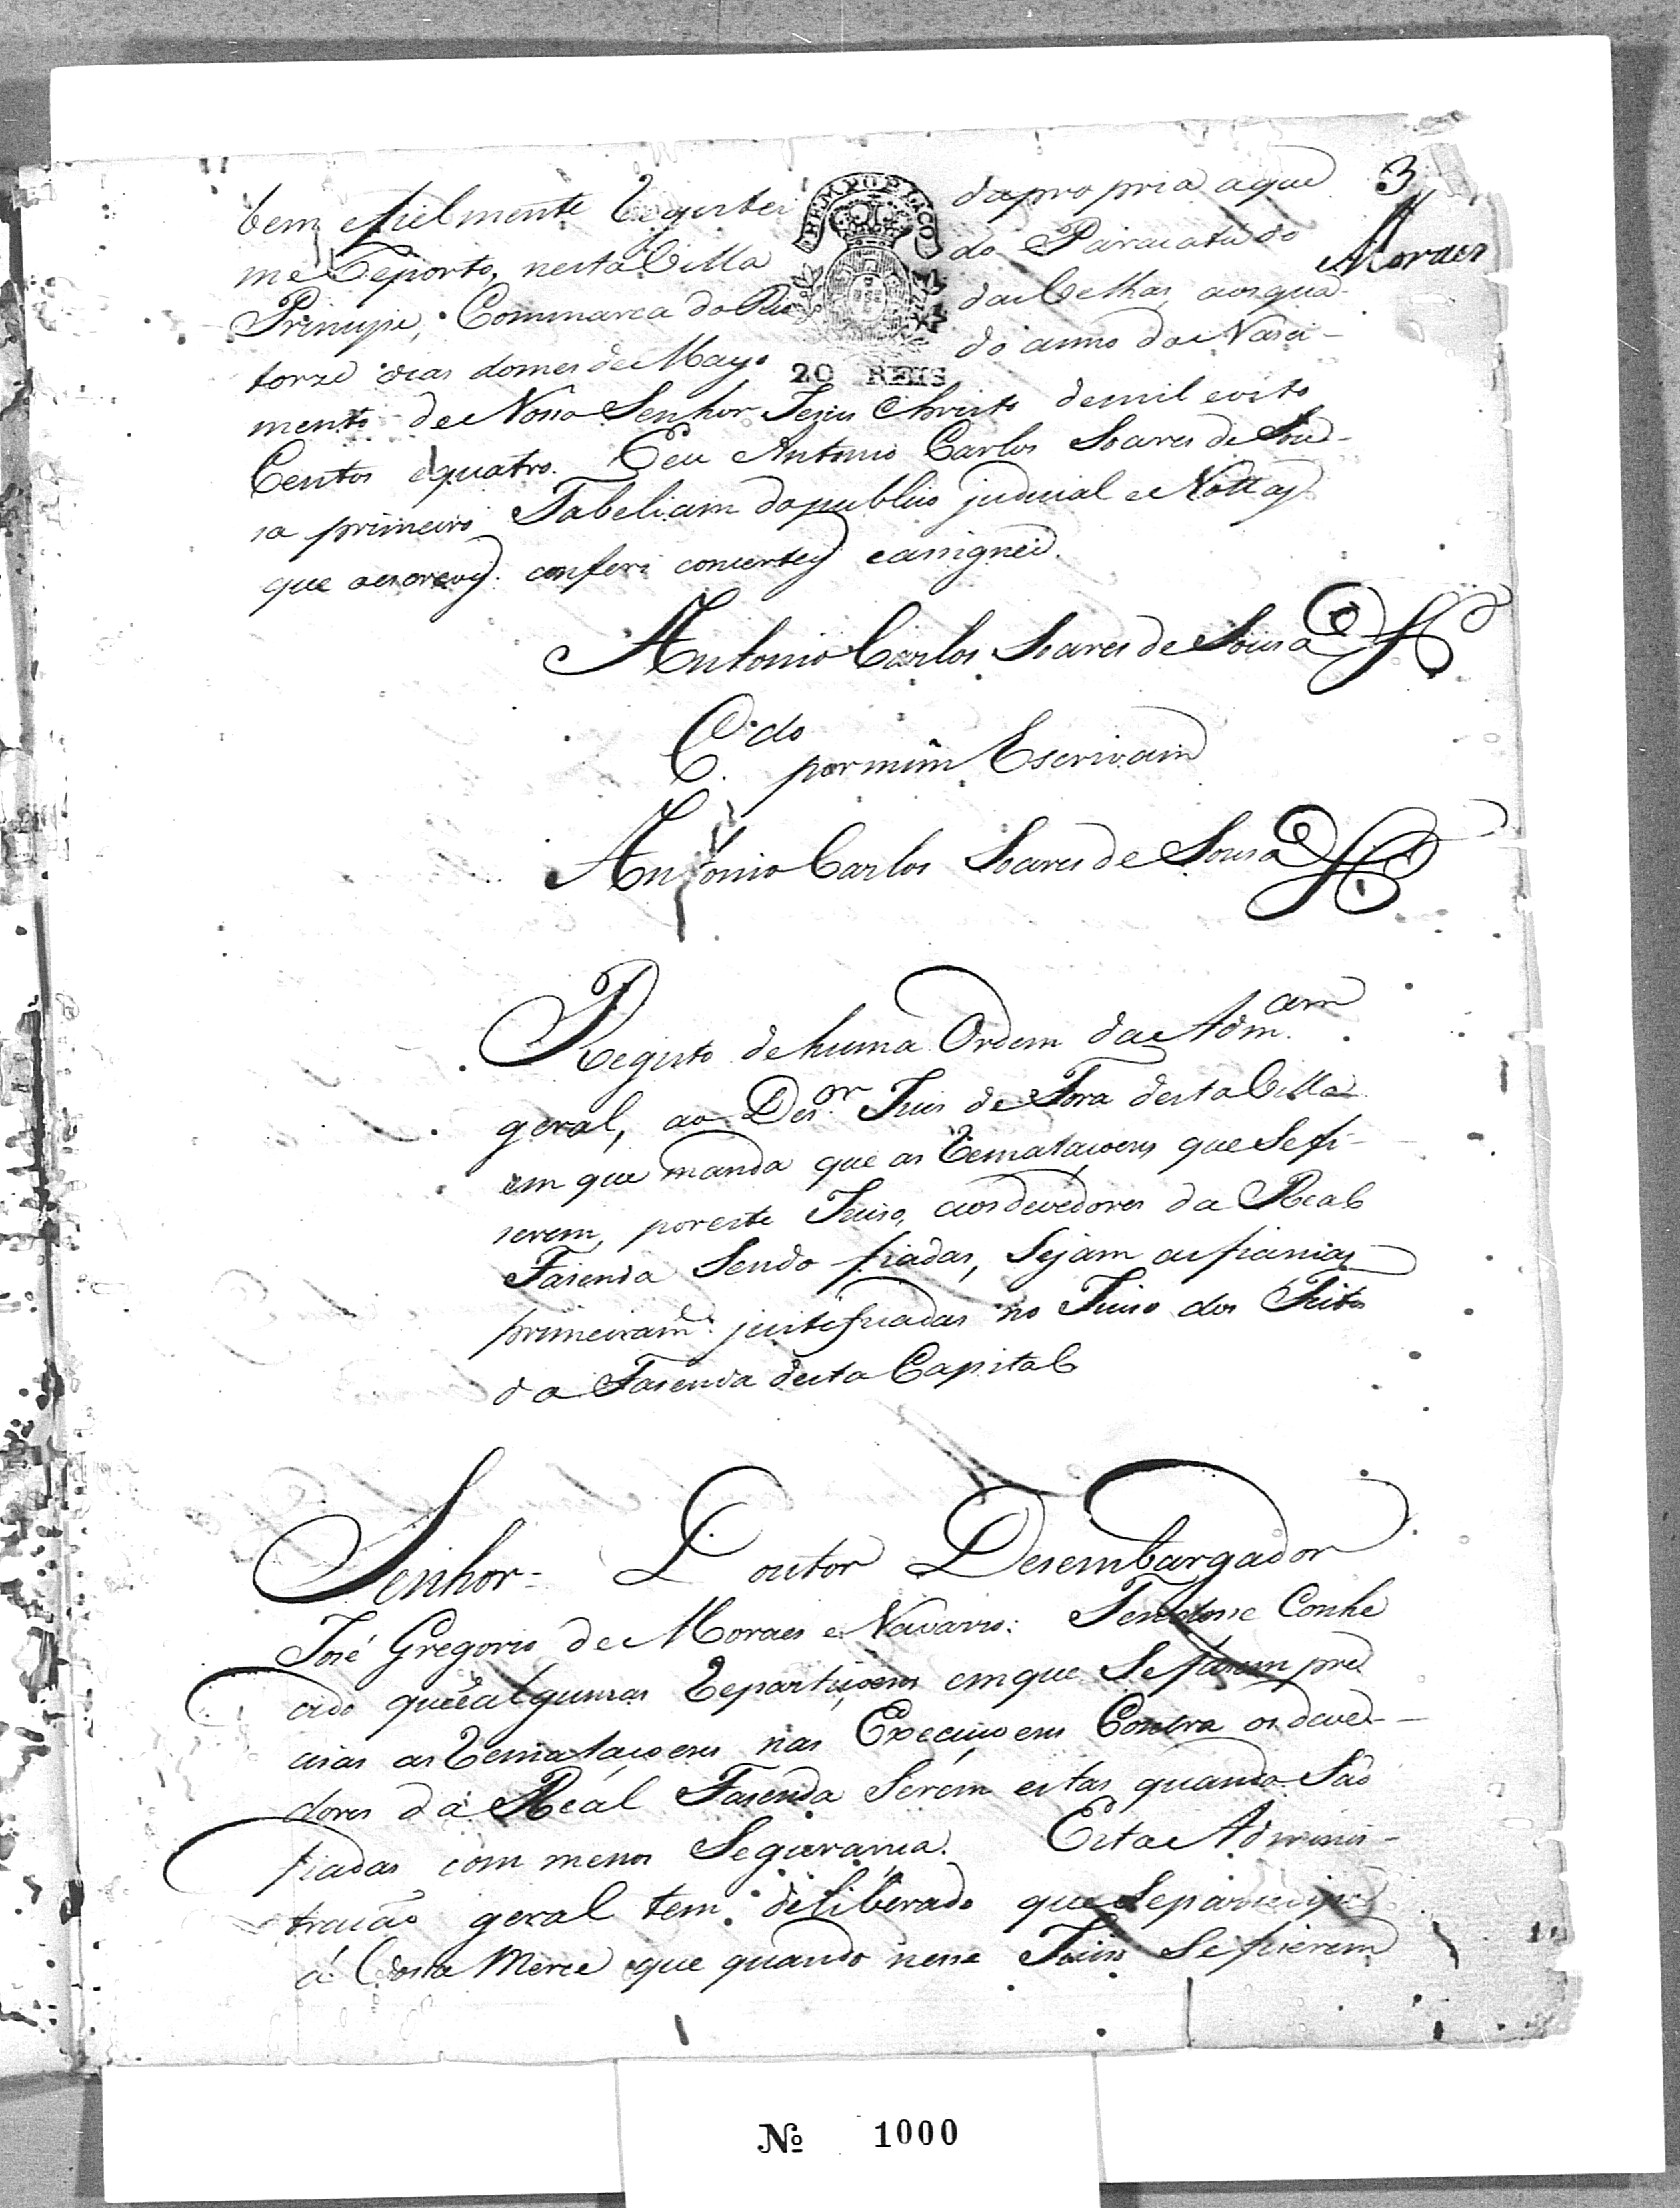 bem efielmente Registei dapropria aque 3
me Reporto, nesta Villa do Paracatu do Moraes
Principe, Commarca do Rio das Velhas, aos qua-
torze dias domes de Mayo do anno do Nasci-
REM PO PLICO
20 REIS
mento de Nosso Senhor Jezus Christo demil eoito
Centos equatro. Eeu Antonio Carlos Soares de Sou-
sa primeiro Tabeliam do publico judicial e Nottas
que aescrevy. conferi concertey eassignei.
Antonio Carlos Soares de Sousa
C.do
C. por mim Escrivam
Antonio Carlos Soares de Sousa
Registo de huma Ordem da Adm.am
geral, ao Des.or Juis de Fora desta Villa
em que manda que as Rematacoens que Sefi-
serem, por este Juiso, aos devedores da Real
Fasenda Sendo fiadas, Sejam as fiancas
primeiram.e justificadas no Juiso dos Feitos
da Fasenda desta Capital
Senhor = Doutor Desembargador
José Gregorio de Moraes e Navarro: Tendosse Conhe
cido que em algumas Repartiçoens em que Se fasem pre
cisas as Rematacoens nas Execuçoens Contra os deve-
dores da Reál Fasenda Serem estas quando São
fiadas com menos Segurança. Esta Adminis-
tração geral tem deliberado que Se participe
á Vossa Merce que quando nesse Juiso Se fiserem
No 1000